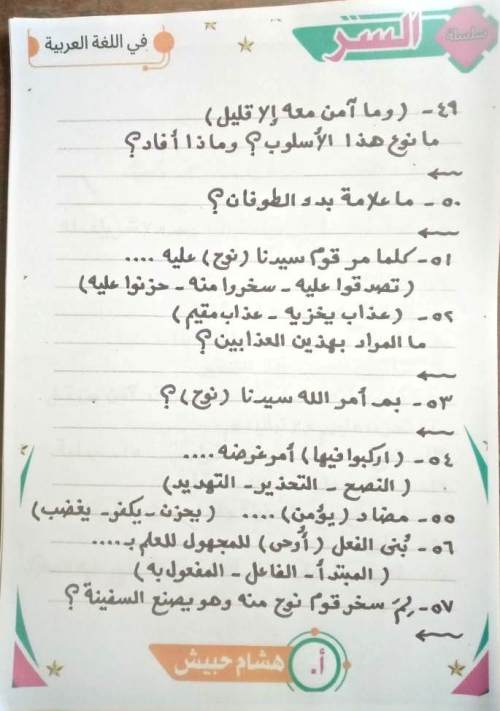 سلسلة السر
في اللغة العربية
٤٩- (وما آمن معه إلا قليل)
ما نوع هذا الأسلوب؟ وماذا أفاد؟
٥٠- ما علامة بدء الطوفان؟
٥١- كلما مر قوم سيدنا (نوح) عليه ....
(تصدقوا عليه - سخروا منه - حزنوا عليه)
٥٢- (عذاب يخزيه - عذاب مقيم)
ما المراد بهذين العذابين؟
٥٣- بم أمر الله سيدنا (نوح)؟
٥٤- (اركبوا فيها) أمر غرضه ....
(النصح - التحذير - التهديد)
٥٥- مضاد (يؤمن) .... (يحزن - يكفر - يغضب)
٥٦- بُنى الفعل (أُوحى) للمجهول للعلم بـ ....
(المبتدأ - الفاعل - المفعول به)
٥٧- لِمَ سخر قوم نوح منه وهو يصنع السفينة؟
أ. هشام حبيش